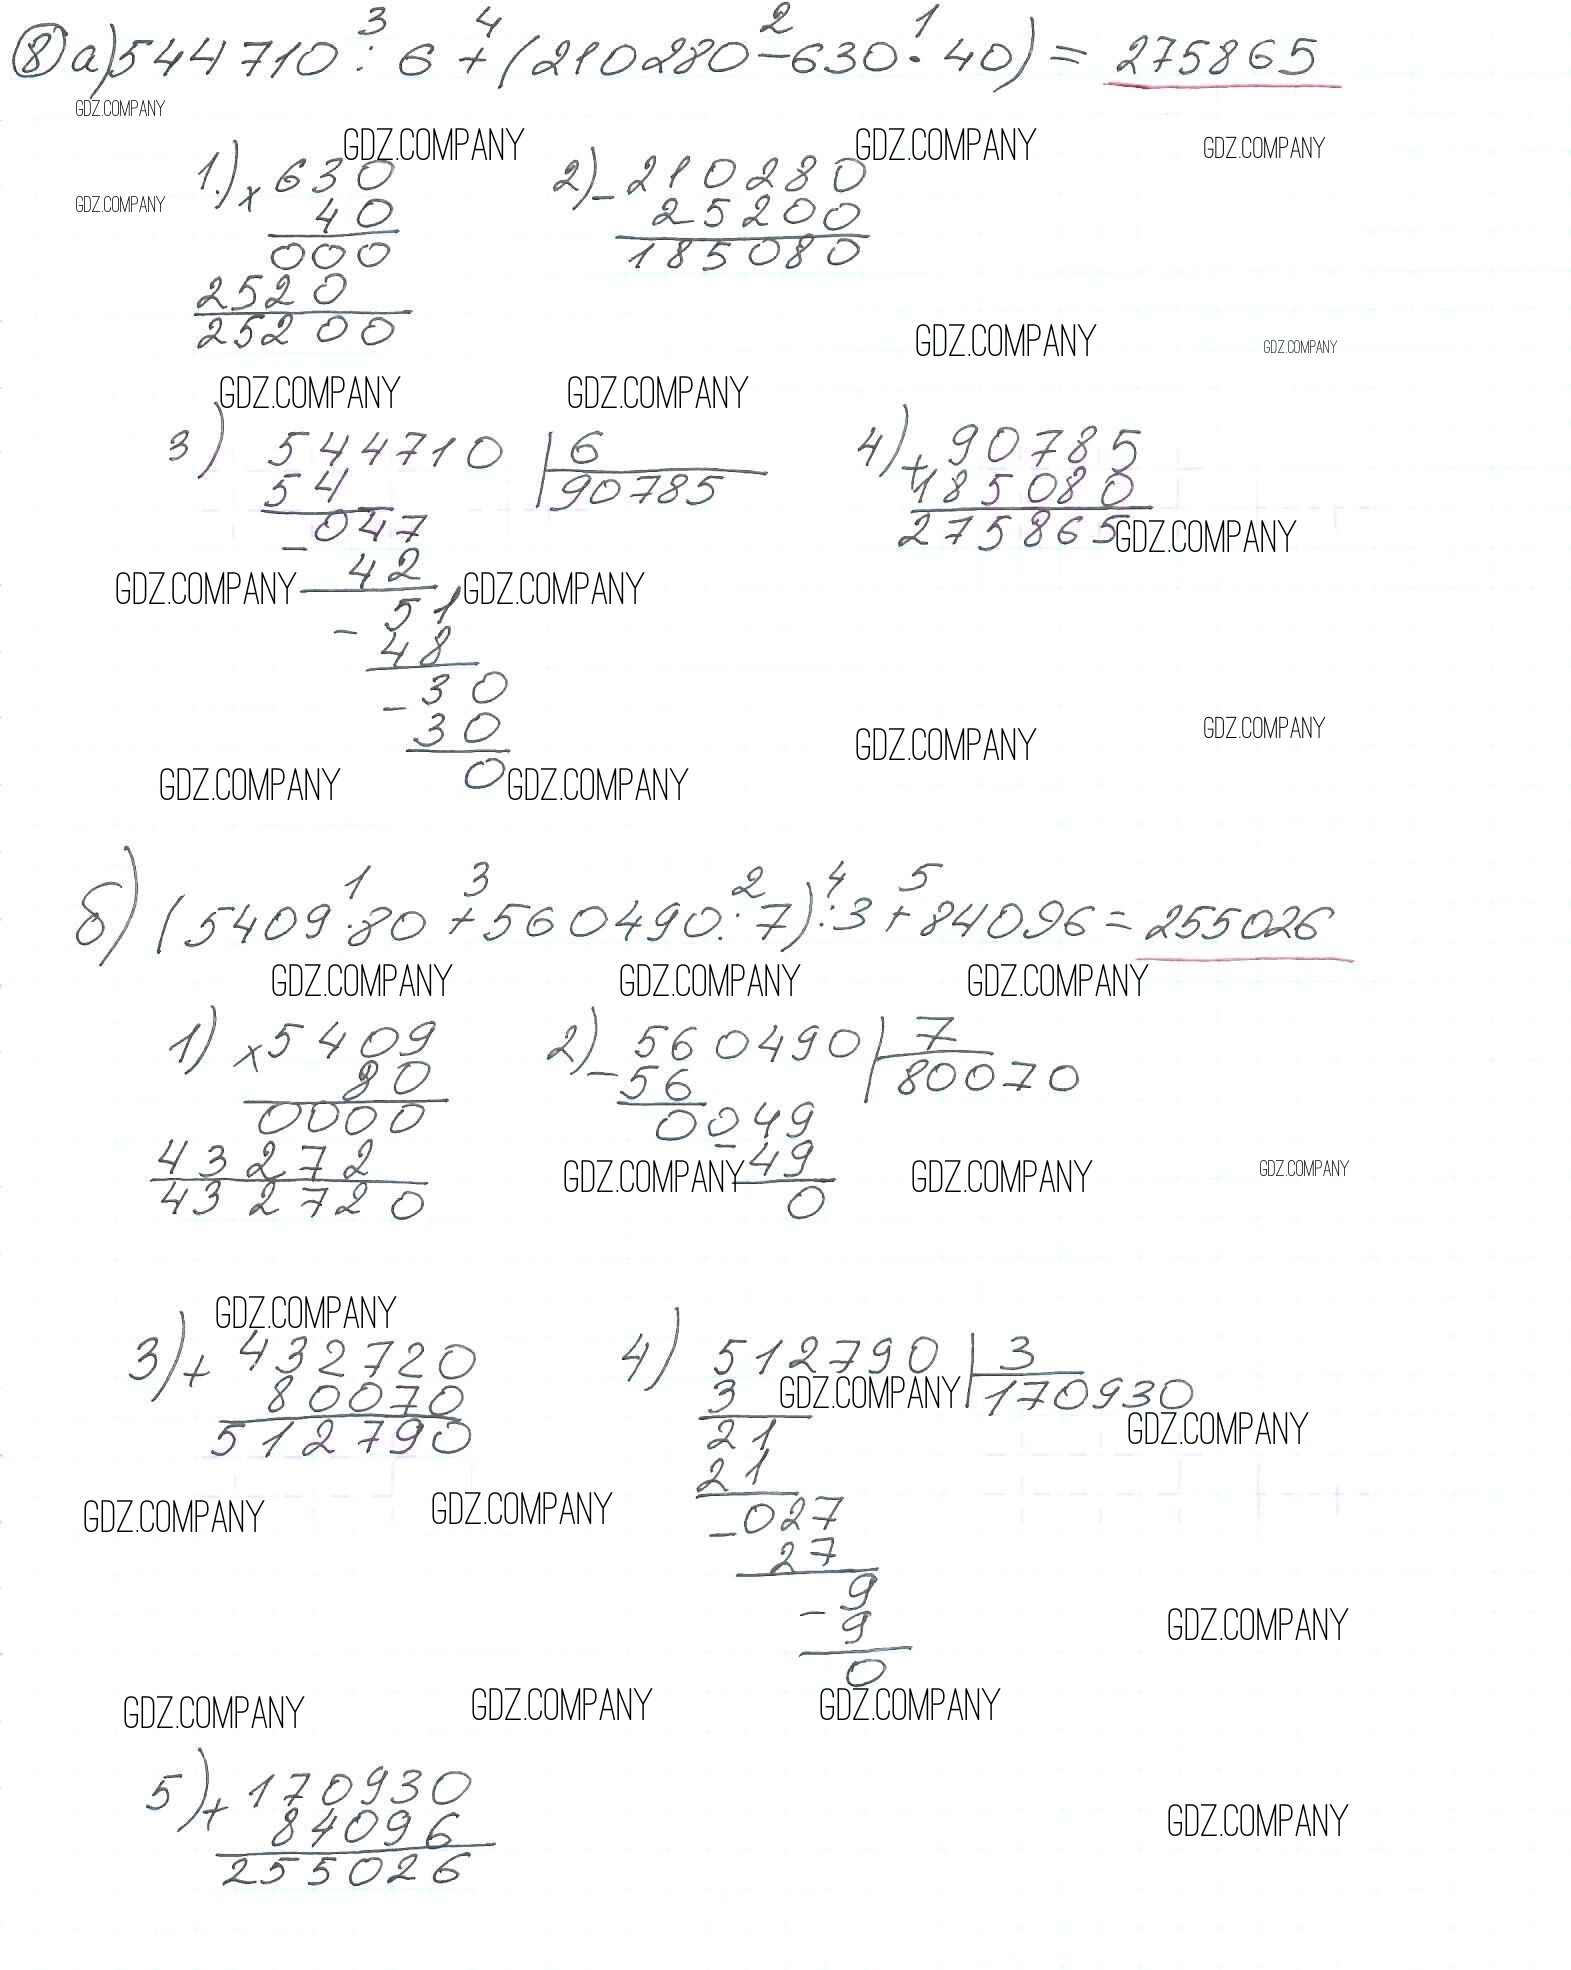 3 4 2 1
8 а) 544710 : 6 + (210280 - 630 · 40) = 275865
GDZ.COMPANY
GDZ.COMPANY GDZ.COMPANY GDZ.COMPANY
1.) × 630 2) - 210280
GDZ.COMPANY
40 25200
000 185080
2520
25200
GDZ.COMPANY GDZ.COMPANY
GDZ.COMPANY GDZ.COMPANY
3) 544710 | 6 4) + 90785
54 90785 185080
- 047 275865 GDZ.COMPANY
42
GDZ.COMPANY GDZ.COMPANY
- 51
48
- 30
30 GDZ.COMPANY GDZ.COMPANY
0
GDZ.COMPANY GDZ.COMPANY
1 3 2 4 5
б) (5409 · 80 + 560490 : 7) : 3 + 84096 = 255026
GDZ.COMPANY GDZ.COMPANY GDZ.COMPANY
1) × 5409 2) - 560490 | 7
80 56 80070
0000 0049
43272 - 49
GDZ.COMPANY GDZ.COMPANY GDZ.COMPANY
432720 0
GDZ.COMPANY
3) + 432720 4) 512790 | 3
80070 3 170930
GDZ.COMPANY GDZ.COMPANY
512790 21
21
GDZ.COMPANY GDZ.COMPANY
- 027
27
- 9
9 GDZ.COMPANY
0
GDZ.COMPANY GDZ.COMPANY GDZ.COMPANY
5) + 170930
84096 GDZ.COMPANY
255026